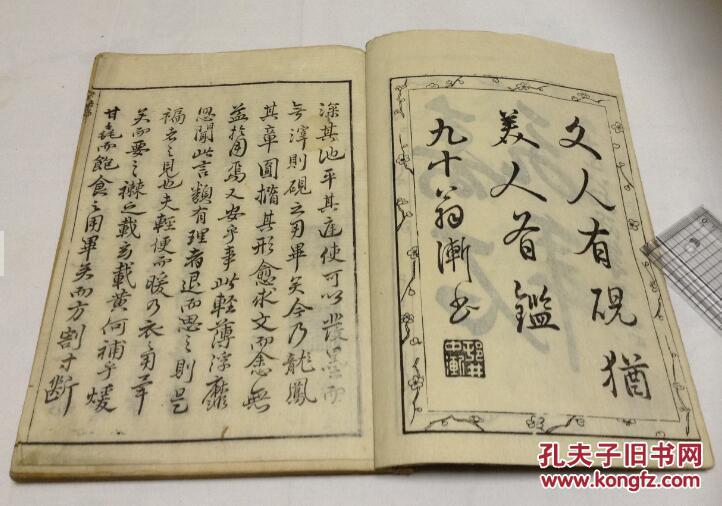 文人有硯猶
美人有鑑
九十翁漸書
深其池平其庭使可以發墨而
無滓則硯之用畢矣今乃龍鳳
其章圓橢其形愈求文而愈無
益於用焉又安乎事此輕薄浮靡
思聞此言類有理者退而思之則是
福者之見也夫輕便而暖乃衣之用畢
矣而要之襟之載玄載黃何補乎煖
甘毳而飽食之用畢矣而方割寸斷
孔夫子旧书网
www.kongfz.com